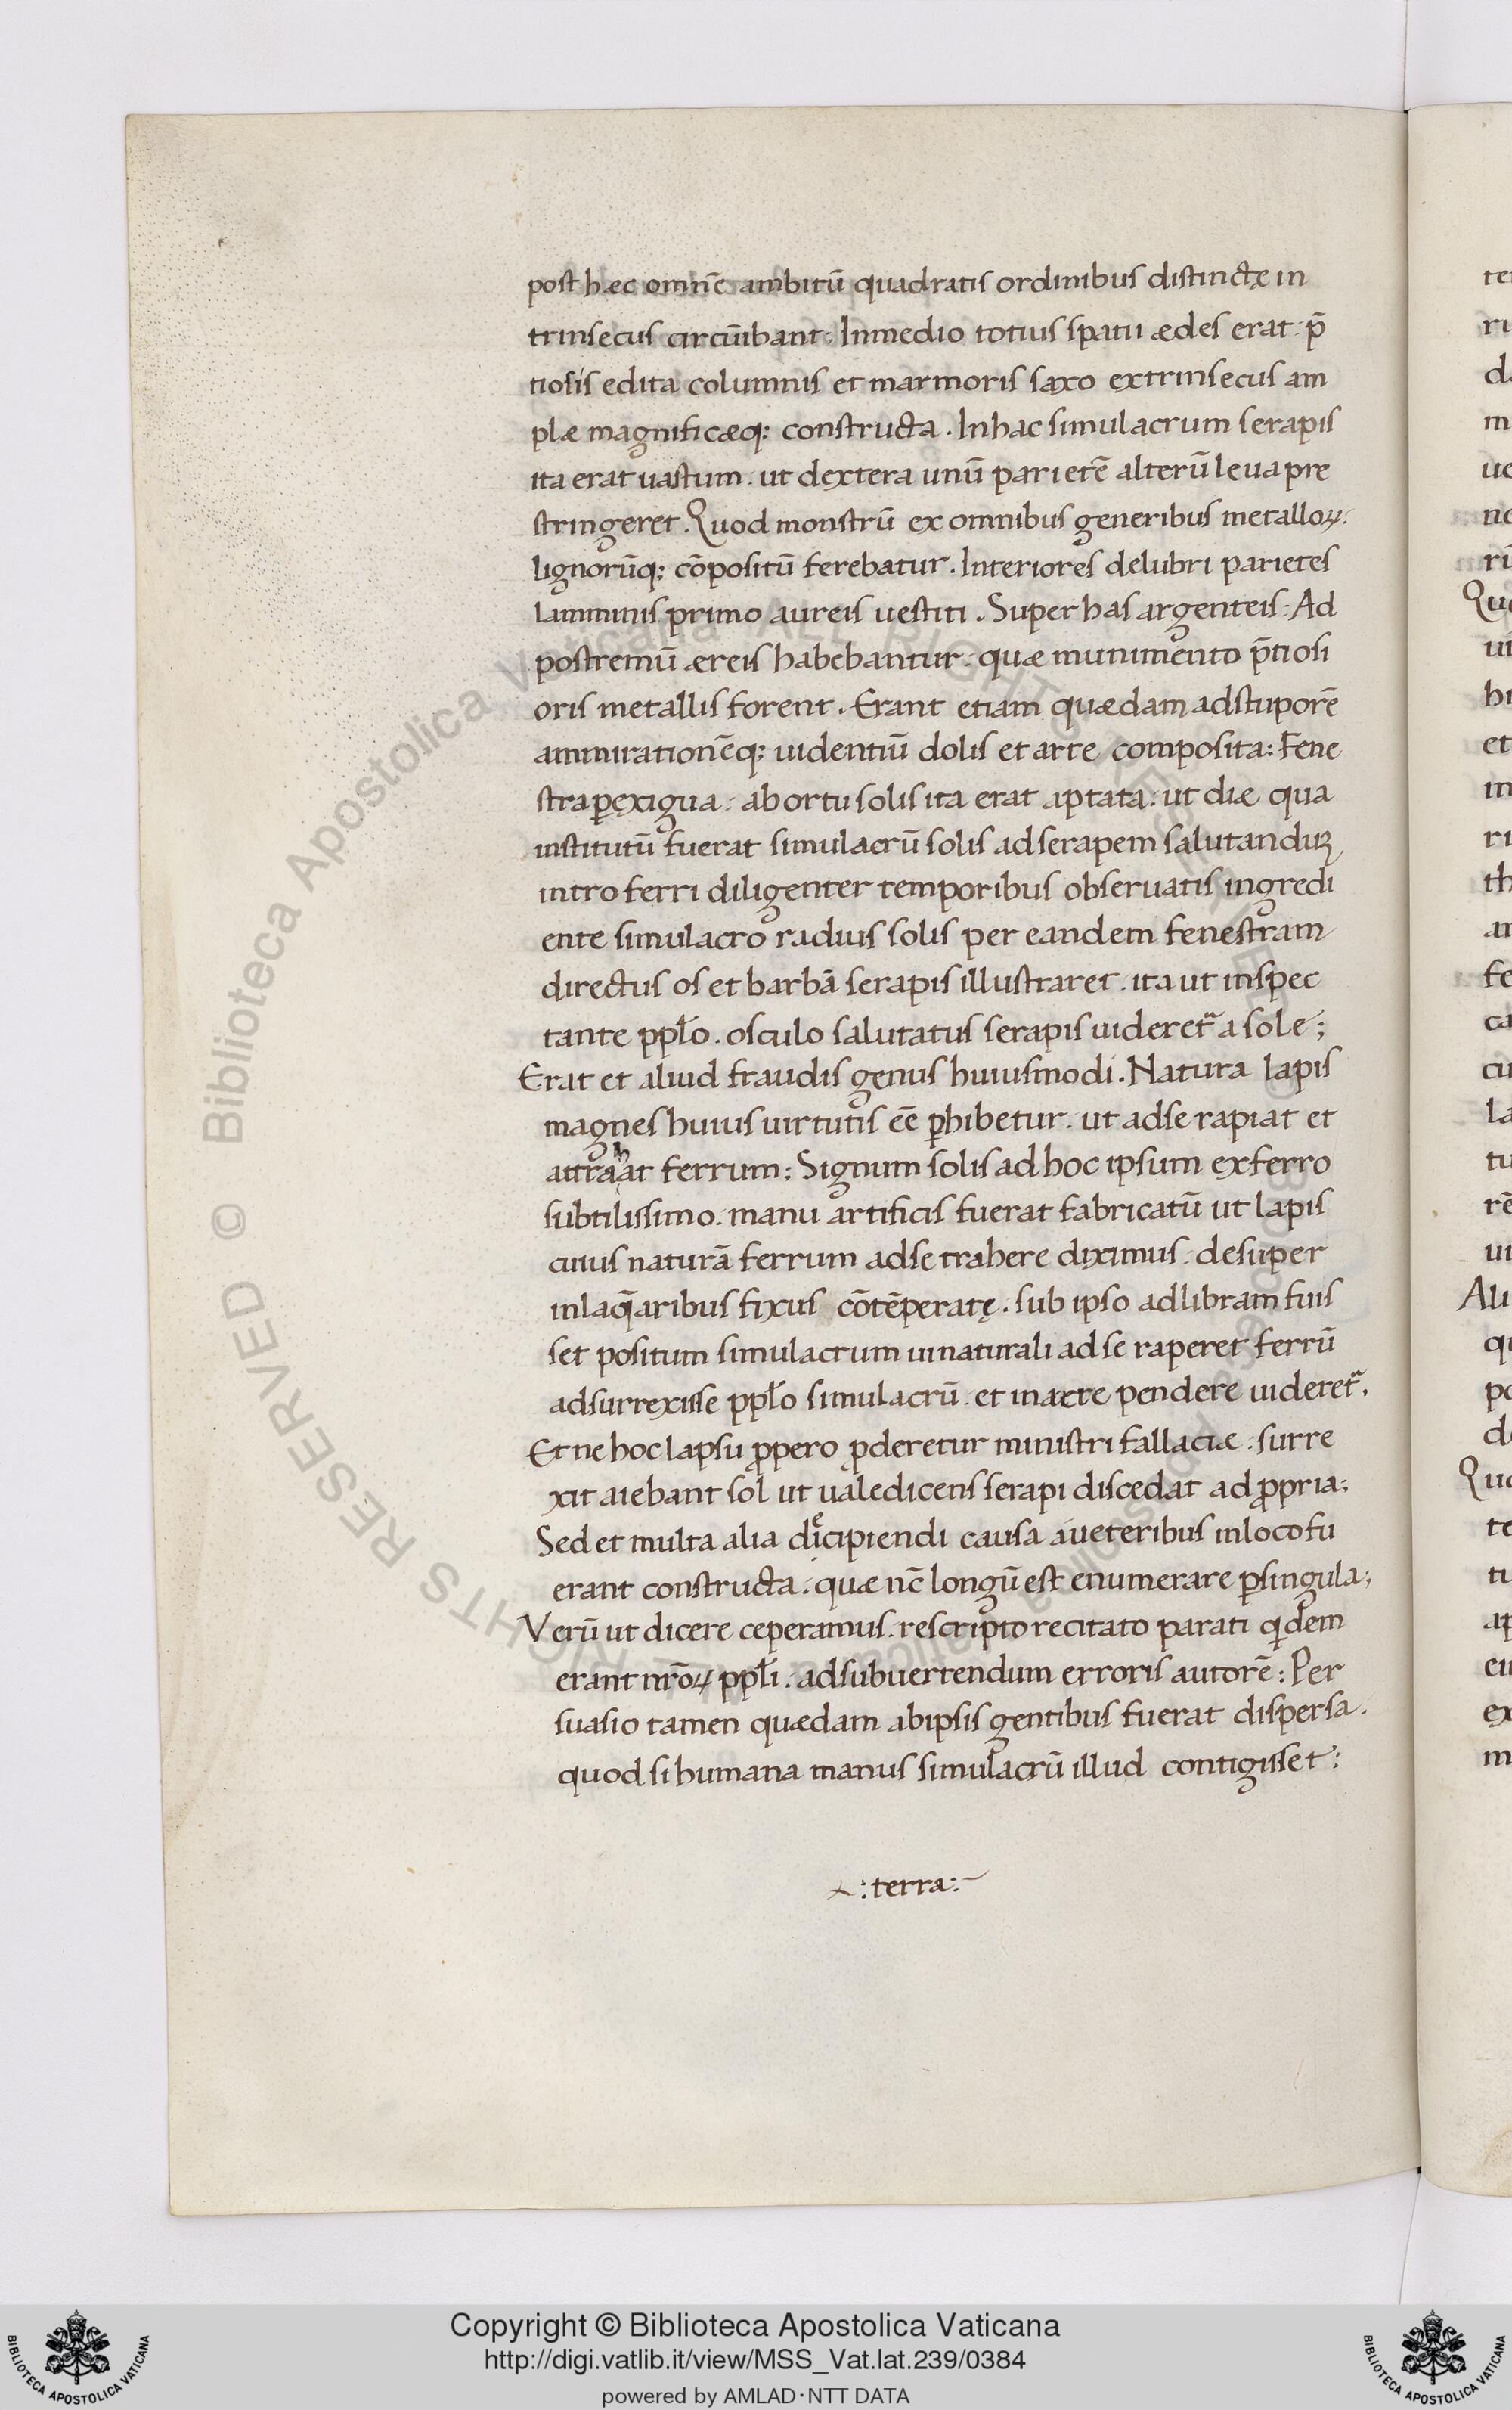 post hæc omnē ambitū quadratis ordinibus distinctæ in
trinsecus circūibant. Inmedio totius spatii ædes erat. p̄
tiosis edita columnis et marmoris saxo extrinsecus am
plæ magnificæq; constructa. Inhac simulacrum serapis
ita erat uastum. ut dextera unū parietē alterū leua pre
stringeret. Quod monstrū ex omnibus generibus metalloꝝ.
lignorūq; cōpositū ferebatur. Interiores delubri parietes
lamminis primo aureis uestiti. Super has argenteis. Ad
postremū æreis habebantur. quæ munimento p̄tiosi
oris metallis forent. Erant etiam quædam adstuporē
ammirationēq; uidentiū dolis et arte composita: Fene
stra ꝑexigua. abortu solis ita erat aptata. ut diæ qua
institutū fuerat simulacrū solis adserapem salutanduꝫ
intro ferri diligenter temporibus obseruatis ingredi
ente simulacro radius solis per eandem fenestram
directus os et barbā serapis illustraret. ita ut inspec
tante ppl̄o. osculo salutatus serapis uideret᷑ a sole;
Erat et aliud fraudis genus huiusmodi. Natura lapis
magnes huius uirtutis eē ꝑhibetur. ut adse rapiat et
attrahat ferrum: Signum solis ad hoc ipsum exferro
subtilissimo. manu artificis fuerat fabricatū ut lapis
cuius naturā ferrum adse trahere diximus. desuper
inlaq̄aribus fixus cōtēperatę. sub ipso adlibram fuis
set positum simulacrum ui naturali ad se raperet ferrū
adsurrexisse ppl̄o simulacrū. et inaere pendere uideret᷑.
Et ne hoc lapsu ꝓpero ꝓderetur ministri fallaciæ. surre
xit aiebant sol ut ualedicens serapi discedat ad ꝓpria;
Sed et multa alia decipiendi causa aueteribus inloco fu
erant constructa. quæ nc̄ longū est enumerare ꝑsingula;
Verū ut dicere ceperamus. rescripto recitato parati qidem
erant nr̄oꝝ ppl̄i. adsubuertendum erroris autorē: Per
suasio tamen quædam abipsis gentibus fuerat dispersa.
quod si humana manus simulacrū illud contigisset:
:terra:
© Biblioteca Apostolica Vaticana ALL RIGHTS RESERVED
Copyright © Biblioteca Apostolica Vaticana
http://digi.vatlib.it/view/MSS_Vat.lat.239/0384
powered by AMLAD·NTT DATA
BIBLIOTECA APOSTOLICA VATICANA
BIBLIOTECA APOSTOLICA VATICANA